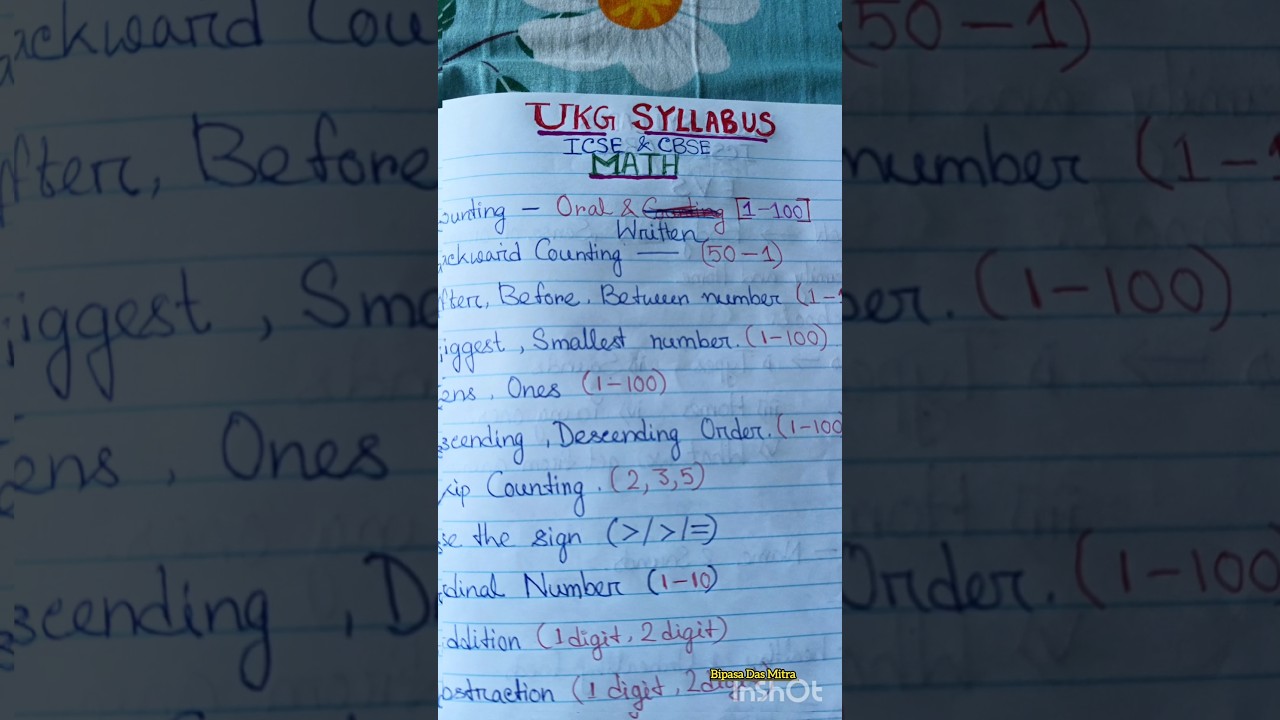 UKG SYLLABUS
ICSE & CBSE
MATH
ounting – Oral & [1-100]
Written
ackward Counting — (50-1)
fter, Before, Between number (1-1
iggest, Smallest number. (1-100)
ens, Ones (1-100)
scending, Descending Order. (1-100
kip Counting. (2,3,5)
se the sign (>/>/=)
dinal Number (1-10)
ddition (1 digit, 2 digit)
bstraction (1 digit, 2 digit)
Bipasa Das Mitra
InShOt